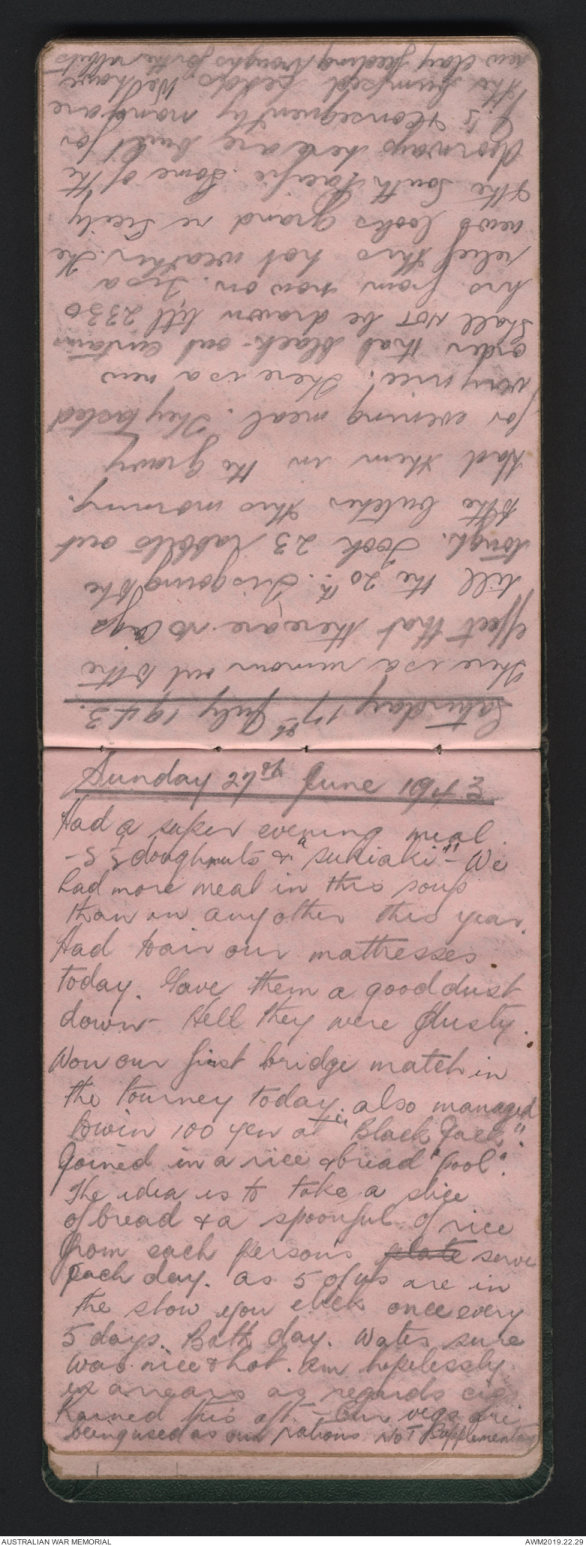 Saturday 17th July 1943.
There is a rumour out to the
effect that there are no cigs
till the 20th. Tis going to be
tough. Took 23 rabbits out
to the butcher this morning.
Had them in the gravy
for evening meal. They tasted
very nice! There is a new
order that black-out curtains
shall NOT be drawn till 2330
hrs from now on. Tis a
relief this hot weather. The
news looks grand re Sicily
& the South Pacific. Some of the
doorways here are built for
& consequently many are
the bumped heads. We have
new clay feeding troughs for the rabbits
Sunday 26th June 1943
Had a super evening meal.
- 5 doughnuts & "sukiaki" - We
had more meat in this soup
than in any other this year.
Had to air our mattresses
today. Gave them a good dust
down - Hell they were dusty.
Won our first bridge match in
the tourney today. also managed
to win 100 yen at "Black Jack".
Joined in a rice & bread "Pool".
The idea is to take a slice
of bread & a spoonful of rice
from each persons plate serve
each day. as 5 of us are in
the show you click once every
5 days. Bath day. Water sure
was nice & hot. Am hopelessly
in arrears as regards cigs
Rained this aft - Our vegs are
being used as our rations NOT supplementary